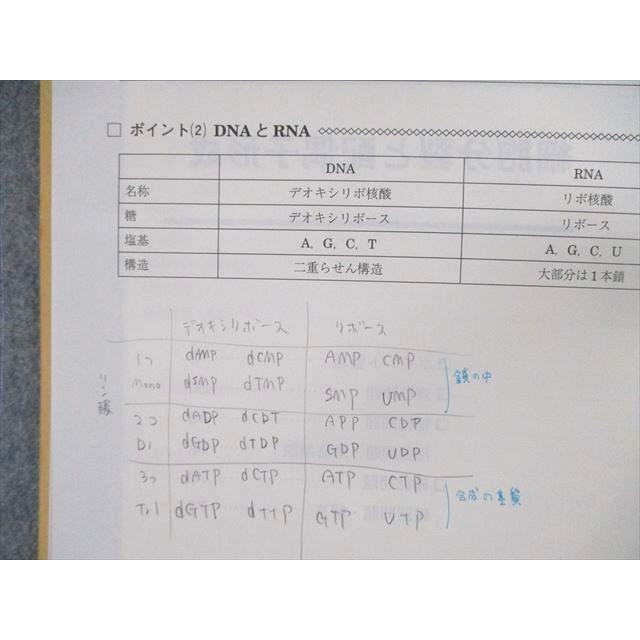 □ ポイント(2) DNAとRNA
DNA RNA
名称 デオキシリボ核酸 リボ核酸
糖 デオキシリボース リボース
塩基 A, G, C, T A, G, C, U
構造 二重らせん構造 大部分は1本鎖
デオキシリボース リボース
リン酸
1つ dAMP dCMP AMP CMP
Mono dSMP dTMP SMP UMP
鎖の中
2つ dADP dCDT APP CDP
Di dGDP dTDP GDP UDP
3つ dATP dCTP ATP CTP
Tri dGTP dTTP GTP UTP
合成の基質